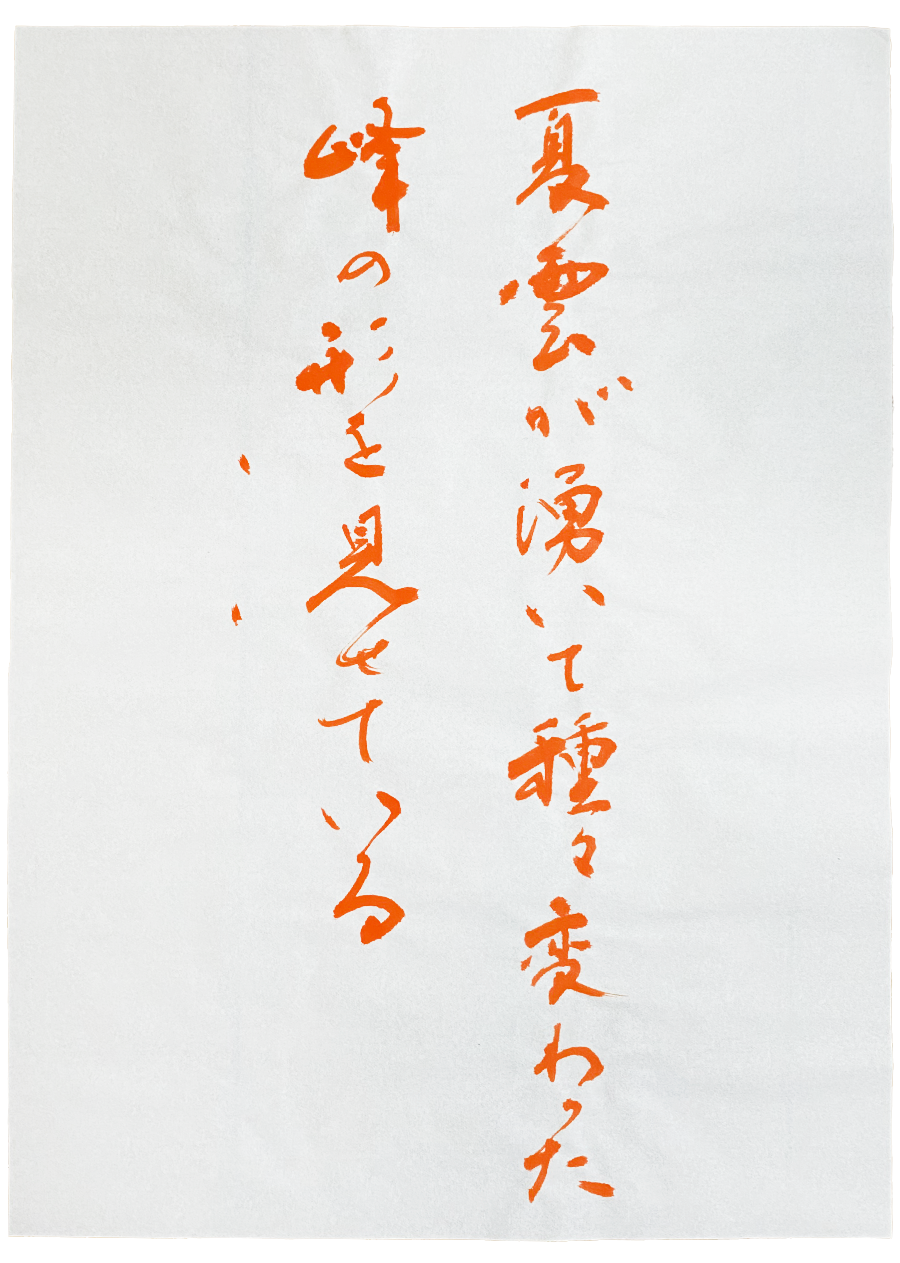 夏雲が湧いて種々変わった
峰の形を見せている